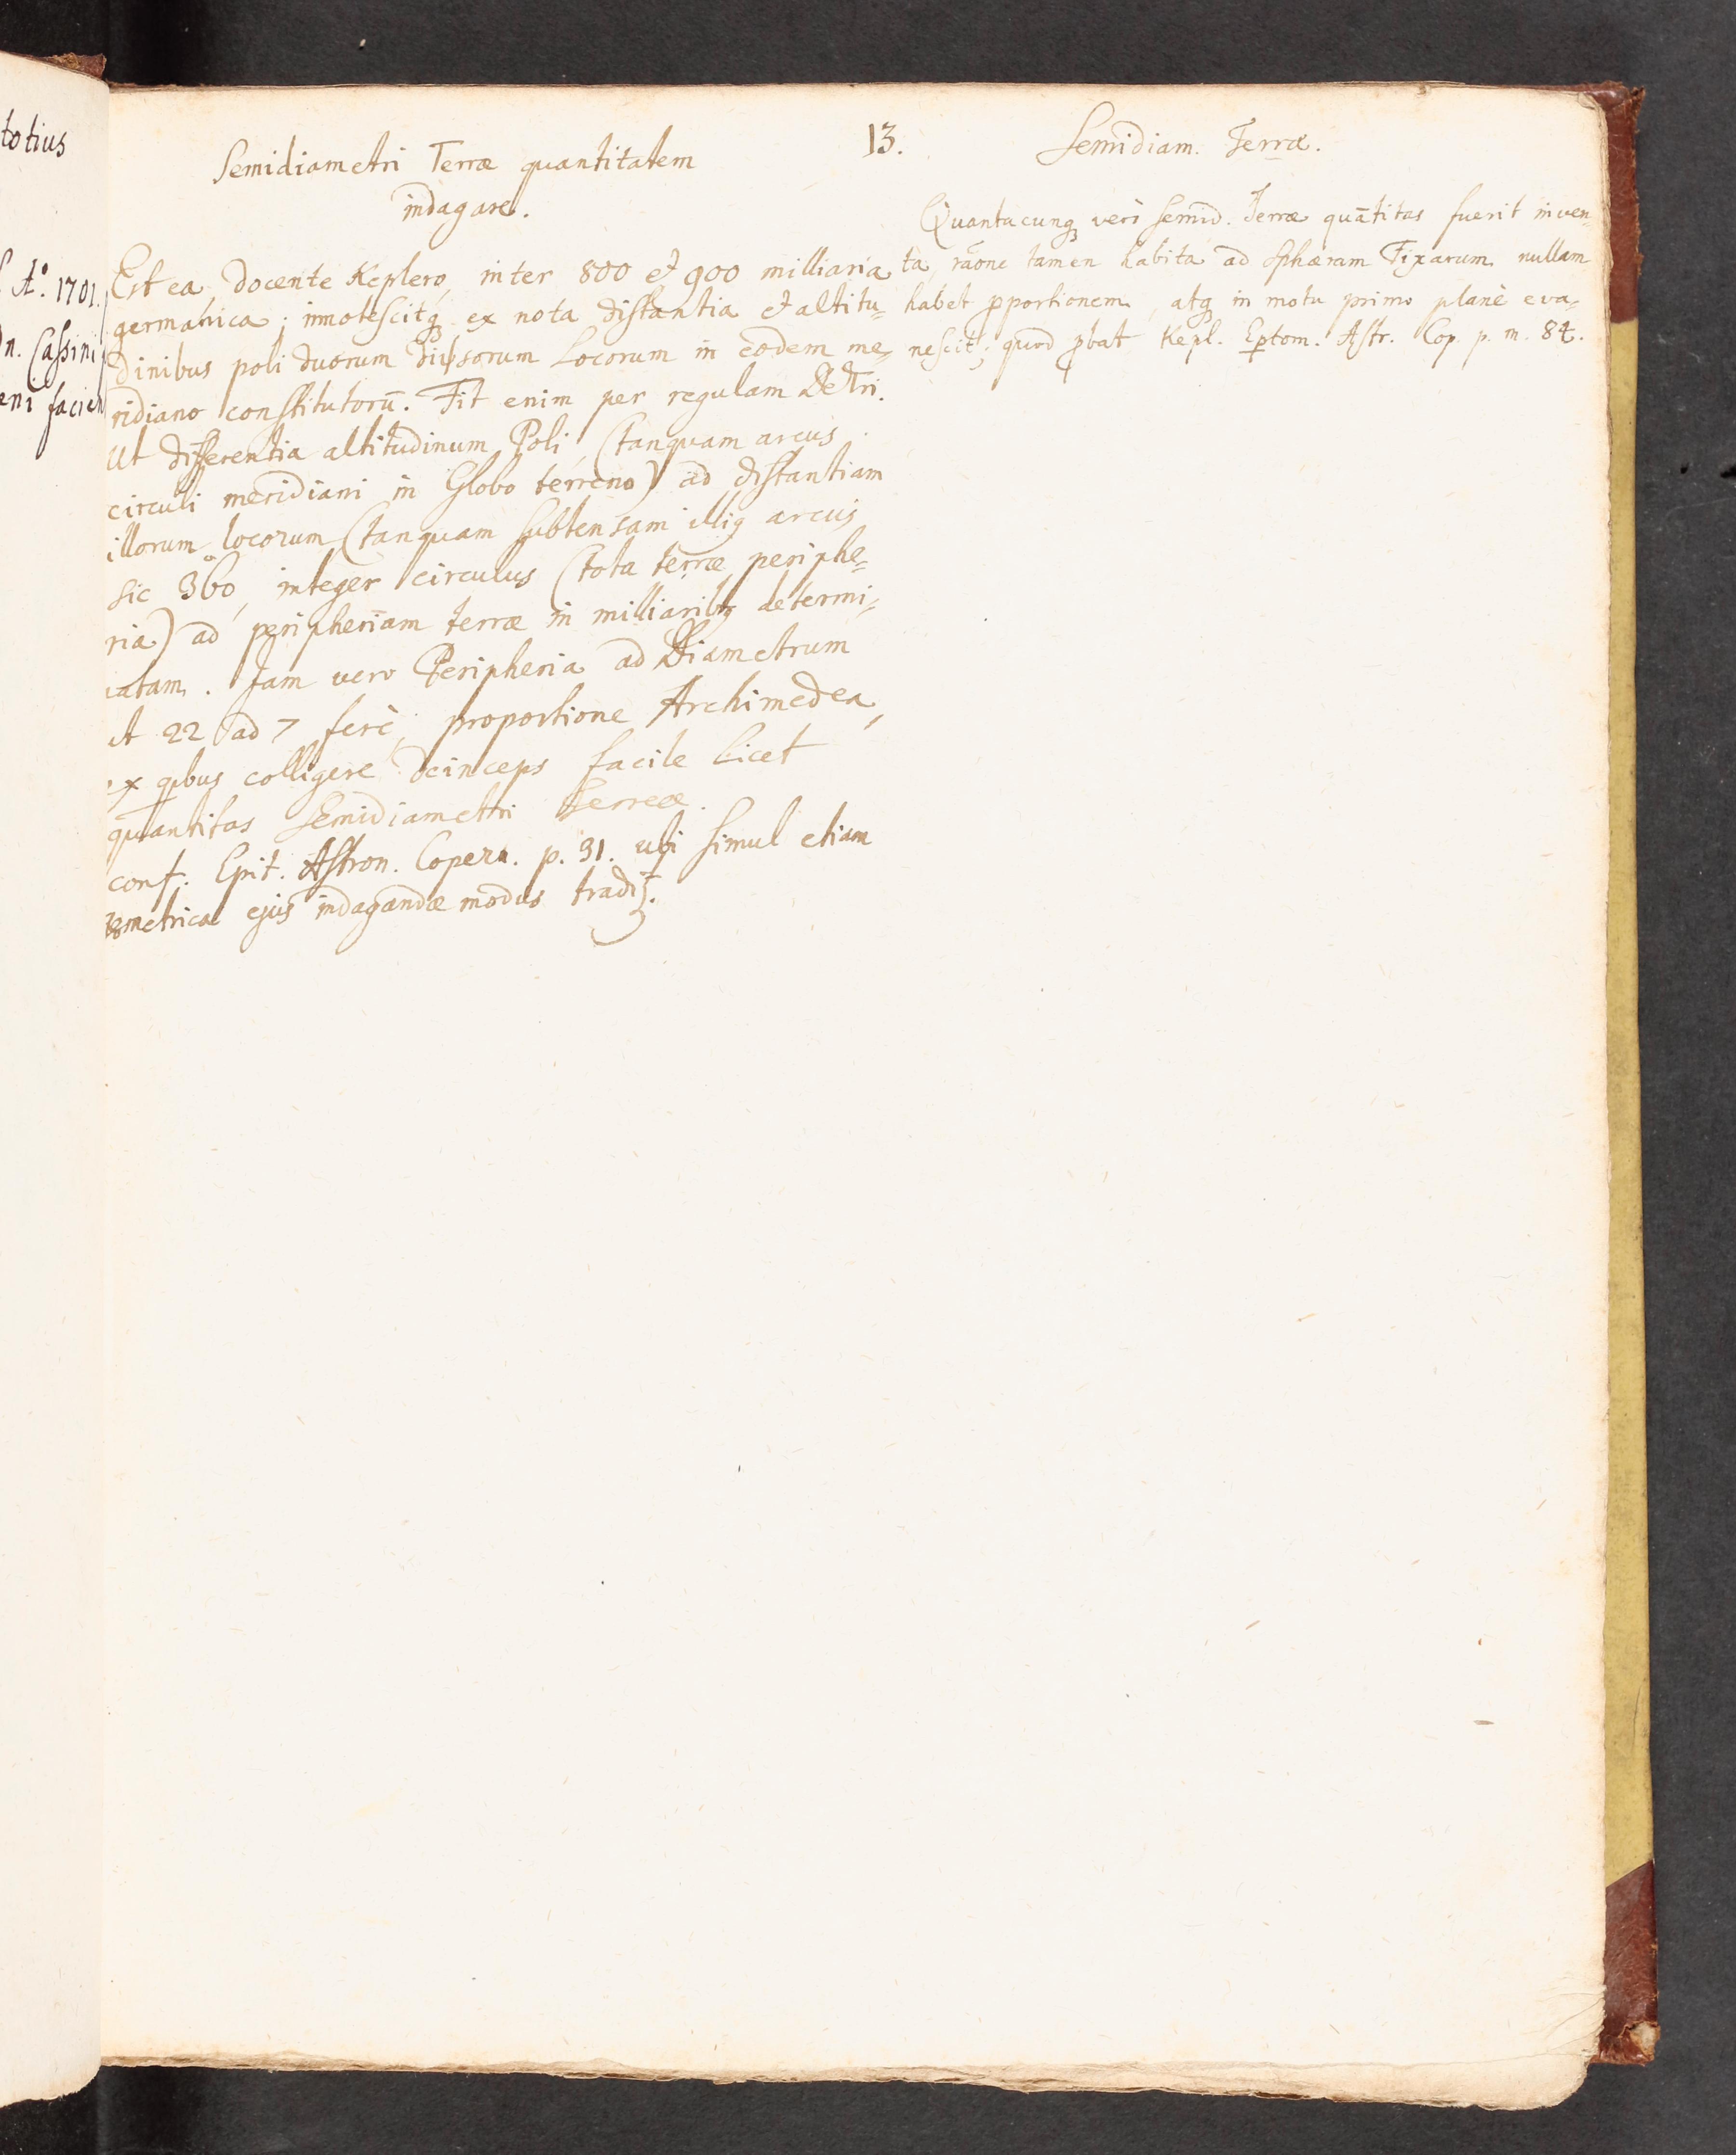 totius
A°. 1701.
Dn. Cassini
eni facien
13.
Semidiametri Terræ quantitatem
indagare.
Est ea docente Keplero, inter 800 et 900 milliaria
germanica; innotescitq₃ ex nota distantia et altitu=
dinibus poli duorum diversorum Locorum in eodem me=
ridiano constitutorū. Fit enim per regulam DeTri.
Ut differentia altitudinum Poli (tanquam arcus
circuli meridiani in Globo terreno) ad distantiam
illorum locorum (tanquam subtensam illig arcus
sic 360°, integer circulus (tota terræ periphe=
ria) ad peripheriam terræ in milliarib₃ determi=
natam. Jam vero Peripheria ad Diametrum
ut 22 ad 7 ferè, proportione Archimedea,
ex qibus colligere deinceps facile licet
quantitas Semidiametri Terreæ.
conf. Epit. Astron. Copern. p. 31. ubi simul etiam
Geometricæ ejus indagandæ modus tradit̃.
Semidiam. Terræ.
Quantacunq₃ verò semid. Terræ quātitas fuerit inven=
ta, rãone tamen habitâ ad Sphæram Fixarum nullam
habet pportionem, atq₃ in motu primo planè eva=
nescit; quod pbat Kepl. Eptom. Astr. Cop. p. m. 84.